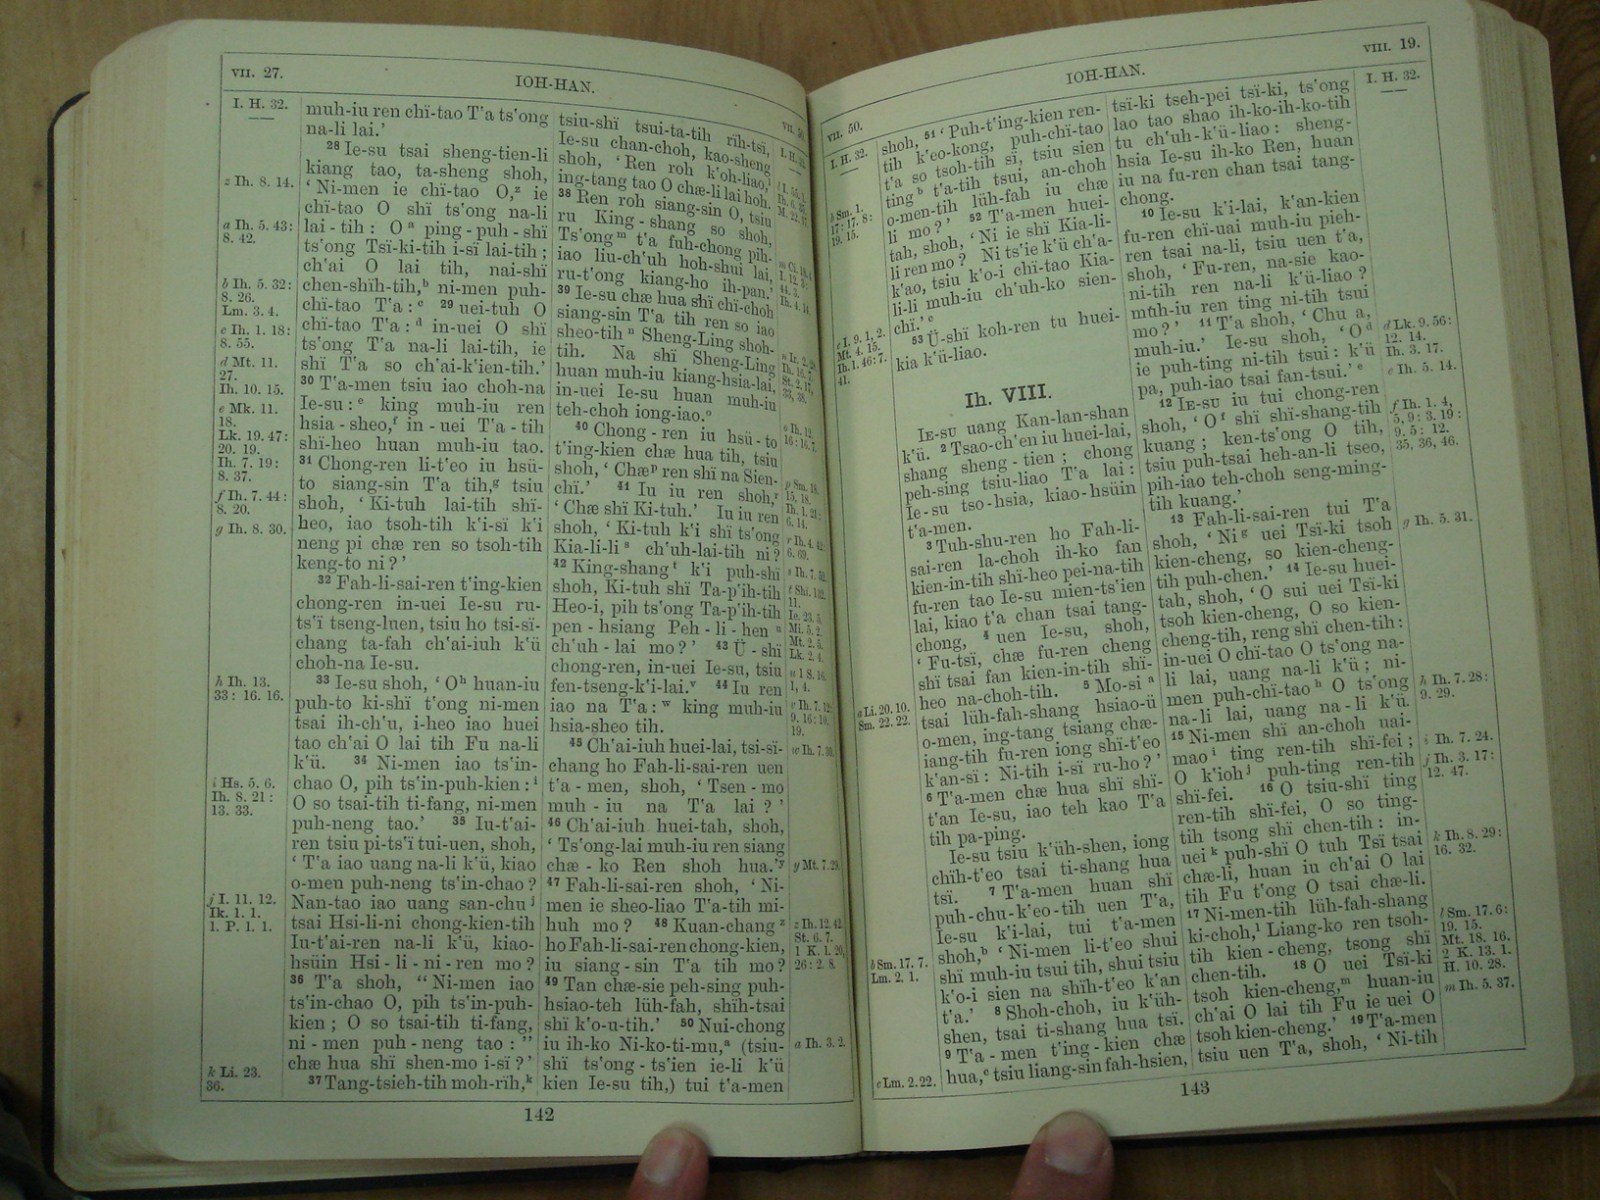 VII. 27.
IOH-HAN.
I. H. 32.
z Ih. 8. 14.
a Ih. 5. 43:
8. 42.
b Ih. 5. 32:
8. 26.
Lm. 3. 4.
c Ih. 1. 18:
8. 55.
d Mt. 11.
27.
Ih. 10. 15.
e Mk. 11.
18.
Lk. 19. 47:
20. 19.
Ih. 7. 19:
8. 37.
f Ih. 7. 44:
8. 20.
g Ih. 8. 30.
h Ih. 13.
33: 16. 16.
i Hs. 5. 6.
Ih. 8. 21:
13. 33.
j I. 11. 12.
Ik. 1. 1.
1. P. 1. 1.
k Li. 23.
36.
muh-iu ren chï-tao T'a ts'ong
na-li lai.'
28 Ie-su tsai sheng-tien-li
kiang tao, ta-sheng shoh,
' Ni-men ie chï-tao O,z ie
chï-tao O shï ts'ong na-li
lai - tih : O a ping - puh - shï
ts'ong Tsï-ki-tih i-sï lai-tih ;
ch'ai O lai tih, nai-shï
chen-shïh-tih,b ni-men puh-
chï-tao T'a : c 29 uei-tuh O
chï-tao T'a : d in-uei O shï
ts'ong T'a na-li lai-tih, ie
shï T'a so ch'ai-k'ien-tih.'
30 T'a-men tsiu iao choh-na
Ie-su : e king muh-iu ren
hsia - sheo,f in - uei T'a - tih
shï-heo huan muh-iu tao.
31 Chong-ren li-t'eo iu hsü-
to siang-sin T'a tih,g tsiu
shoh, ' Ki-tuh lai-tih shï-
heo, iao tsoh-tih k'i-sï k'i
neng pi chæ ren so tsoh-tih
keng-to ni ? '
32 Fah-li-sai-ren t'ing-kien
chong-ren in-uei Ie-su ru-
ts'ï tseng-luen, tsiu ho tsi-sï-
chang ta-fah ch'ai-iuh k'ü
choh-na Ie-su.
33 Ie-su shoh, ' O h huan-iu
puh-to ki-shï t'ong ni-men
tsai ih-ch'u, i-heo iao huei
tao ch'ai O lai tih Fu na-li
k'ü. 34 Ni-men iao ts'in-
chao O, pih ts'in-puh-kien : i
O so tsai-tih ti-fang, ni-men
puh-neng tao.' 35 Iu-t'ai-
ren tsiu pi-ts'ï tui-uen, shoh,
' T'a iao uang na-li k'ü, kiao
o-men puh-neng ts'in-chao ?
Nan-tao iao uang san-chu j
tsai Hsi-li-ni chong-kien-tih
Iu-t'ai-ren na-li k'ü, kiao-
hsüin Hsi - li - ni - ren mo ?
36 T'a shoh, " Ni-men iao
ts'in-chao O, pih ts'in-puh-
kien ; O so tsai-tih ti-fang,
ni - men puh - neng tao : "
chæ hua shï shen-mo i-sï ? '
37 Tang-tsieh-tih moh-rïh,k
tsiu-shï tsui-ta-tih rïh-tsï,
Ie-su chan-choh, kao-sheng
shoh, ' Ren roh k'oh-liao,
ing-tang tao O chæ-li lai hoh.
38 Ren roh siang-sin O, tsiu
ru King - shang so shoh,
Ts'ong m t'a fuh-chong pih-
iao liu-ch'uh hoh-shui lai,
ru-t'ong kiang-ho ih-pan.'
39 Ie-su chæ hua shï chï-choh
siang-sin T'a tih ren so iao
sheo-tih n Sheng-Ling shoh-
tih. Na shï Sheng-Ling
huan muh-iu kiang-hsia-lai,
in-uei Ie-su huan muh-iu
teh-choh iong-iao.o
40 Chong - ren iu hsü - to
t'ing-kien chæ hua tih, tsiu
shoh, ' Chæ p ren shï na Sien-
chï.' 41 Iu iu ren shoh,
' Chæ shï Ki-tuh.' Iu iu ren
shoh, ' Ki-tuh k'i shï ts'ong
Kia-li-li s ch'uh-lai-tih ni ?
42 King-shang t k'i puh-shï
shoh, Ki-tuh shï Ta-p'ih-tih
Heo-i, pih ts'ong Ta-p'ih-tih
pen - hsiang Peh - li - hen u
ch'uh - lai mo ? ' 43 Ü - shï
chong-ren, in-uei Ie-su, tsiu
fen-tseng-k'i-lai.v 44 Iu ren
iao na T'a : w king muh-iu
hsia-sheo tih.
45 Ch'ai-iuh huei-lai, tsi-sï-
chang ho Fah-li-sai-ren uen
t'a - men, shoh, ' Tsen - mo
muh - iu na T'a lai ? '
46 Ch'ai-iuh huei-tah, shoh,
' Ts'ong-lai muh-iu ren siang
chæ - ko Ren shoh hua.' y
47 Fah-li-sai-ren shoh, ' Ni-
men ie sheo-liao T'a-tih mi-
huh mo ? 48 Kuan-chang z
ho Fah-li-sai-ren chong-kien,
iu siang - sin T'a tih mo ?
49 Tan chæ-sie peh-sing puh-
hsiao-teh lüh-fah, shïh-tsai
shï k'o-u-tih.' 50 Nui-chong
iu ih-ko Ni-ko-ti-mu,a (tsiu-
shï ts'ong - ts'ien ie-li k'ü
kien Ie-su tih,) tui t'a-men
o Ih. 12.
16: 16. 7.
p Sm. 18.
15, 18.
s Ih. 7. 52.
w Ih. 7. 30.
y Mt. 7. 29.
z Ih. 12. 42.
St. 6. 7.
1 K. 1. 20,
26: 2. 8.
a Ih. 3. 2.
142
VII. 50.
IOH-HAN.
VIII. 19.
I. H. 32.
b Sm. 1.
17: 17. 8:
19. 15.
c I. 9. 1, 2.
Mt. 4. 15.
Ih. 1. 46: 7.
41.
a Li. 20. 10.
Sm. 22. 22.
b Sm. 17. 7.
Lm. 2. 1.
c Lm. 2. 22.
shoh, 51 ' Puh-t'ing-kien ren-
tih k'eo-kong, puh-chï-tao
t'a so tsoh-tih sï, tsiu sien
ting b t'a-tih tsui, an-choh
o-men-tih lüh-fah iu chæ
li mo ? ' 52 T'a-men huei-
tah, shoh, ' Ni ie shï Kia-li-
li ren mo ? Ni ts'ie k'ü ch'a-
k'ao, tsiu k'o-i chï-tao Kia-
li-li muh-iu ch'uh-ko sien-
chï.' c
53 Ü-shï koh-ren tu huei-
kia k'ü-liao.
Ih. VIII.
IE-SU uang Kan-lan-shan
k'ü. 2 Tsao-ch'en iu huei-lai,
shang sheng - tien ; chong
peh-sing tsiu-liao T'a lai :
Ie-su tso-hsia, kiao-hsüin
t'a-men.
3 Tuh-shu-ren ho Fah-li-
sai-ren la-choh ih-ko fan
kien-in-tih shï-heo pei-na-tih
fu-ren tao Ie-su mien-ts'ien
lai, kiao t'a chan tsai tang-
chong, 4 uen Ie-su, shoh,
' Fu-tsï, chæ fu-ren cheng
shï tsai fan kien-in-tih shï-
heo na-choh-tih. 5 Mo-si a
tsai lüh-fah-shang hsiao-ü
o-men, ing-tang tsiang chæ-
iang-tih fu-ren iong shï-t'eo
k'an-sï : Ni-tih i-sï ru-ho ? '
6 T'a-men chæ hua shï shï-
t'an Ie-su, iao teh kao T'a
tih pa-ping.
Ie-su tsiu k'üh-shen, iong
chïh-t'eo tsai ti-shang hua
tsï. 7 T'a-men huan shï
puh-chu-k'eo-tih uen T'a,
Ie-su k'i-lai, tui t'a-men
shoh,b ' Ni-men li-t'eo shui
shï muh-iu tsui tih, shui tsiu
k'o-i sien na shïh-t'eo k'an
t'a.' 8 Shoh-choh, iu k'üh-
shen, tsai ti-shang hua tsï.
9 T'a - men t'ing - kien chæ
hua,c tsiu liang-sin fah-hsien,
tsï-ki tseh-pei tsï-ki, ts'ong
lao tao shao ih-ko-ih-ko-tih
tu ch'uh-k'ü-liao : sheng-
hsia Ie-su ih-ko Ren, huan
iu na fu-ren chan tsai tang-
chong.
10 Ie-su k'i-lai, k'an-kien
fu-ren chï-uai muh-iu pieh-
ren tsai na-li, tsiu uen t'a,
shoh, ' Fu-ren, na-sie kao-
ni-tih ren na-li k'ü-liao ?
muh-iu ren ting ni-tih tsui
mo ? ' 11 T'a shoh, ' Chu a,
muh-iu.' Ie-su shoh, ' O d
ie puh-ting ni-tih tsui : k'ü
pa, puh-iao tsai fan-tsui.' e
12 IE-SU iu tui chong-ren
shoh, ' O f shï shï-shang-tih
kuang ; ken-ts'ong O tih,
tsiu puh-tsai heh-an-li tseo,
pih-iao teh-choh seng-ming-
tih kuang.'
13 Fah-li-sai-ren tui T'a
shoh, ' Ni g uei Tsï-ki tsoh
kien-cheng, so kien-cheng-
tih puh-chen.' 14 Ie-su huei-
tah, shoh, ' O sui uei Tsï-ki
tsoh kien-cheng, O so kien-
cheng-tih, reng shï chen-tih :
in-uei O chï-tao O ts'ong na-
li lai, uang na-li k'ü ; ni-
men puh-chï-tao h O ts'ong
na-li lai, uang na - li k'ü.
15 Ni-men shï an-choh uai-
mao i ting ren-tih shï-fei ;
O k'ioh j puh-ting ren-tih
shï-fei. 16 O tsiu-shï ting
ren-tih shï-fei, O so ting-
tih tsong shï chen-tih : in-
uei k puh-shï O tuh Tsï tsai
chæ-li, huan iu ch'ai O lai
tih Fu t'ong O tsai chæ-li.
17 Ni-men-tih lüh-fah-shang
ki-choh,l Liang-ko ren tsoh-
tih kien - cheng, tsong shï
chen-tih. 18 O uei Tsï-ki
tsoh kien-cheng,m huan-iu
ch'ai O lai tih Fu ie uei O
tsoh kien-cheng.' 19 T'a-men
tsiu uen T'a, shoh, ' Ni-tih
I. H. 32.
d Lk. 9. 56:
12. 14.
Ih. 3. 17.
e Ih. 5. 14.
f Ih. 1. 4,
5, 9: 3. 19:
9. 5: 12.
35, 36, 46.
g Ih. 5. 31.
h Ih. 7. 28:
9. 29.
i Ih. 7. 24.
j Ih. 3. 17:
12. 47.
k Ih. 8. 29:
16. 32.
l Sm. 17. 6:
19. 15.
Mt. 18. 16.
2 K. 13. 1.
H. 10. 28.
m Ih. 5. 37.
143